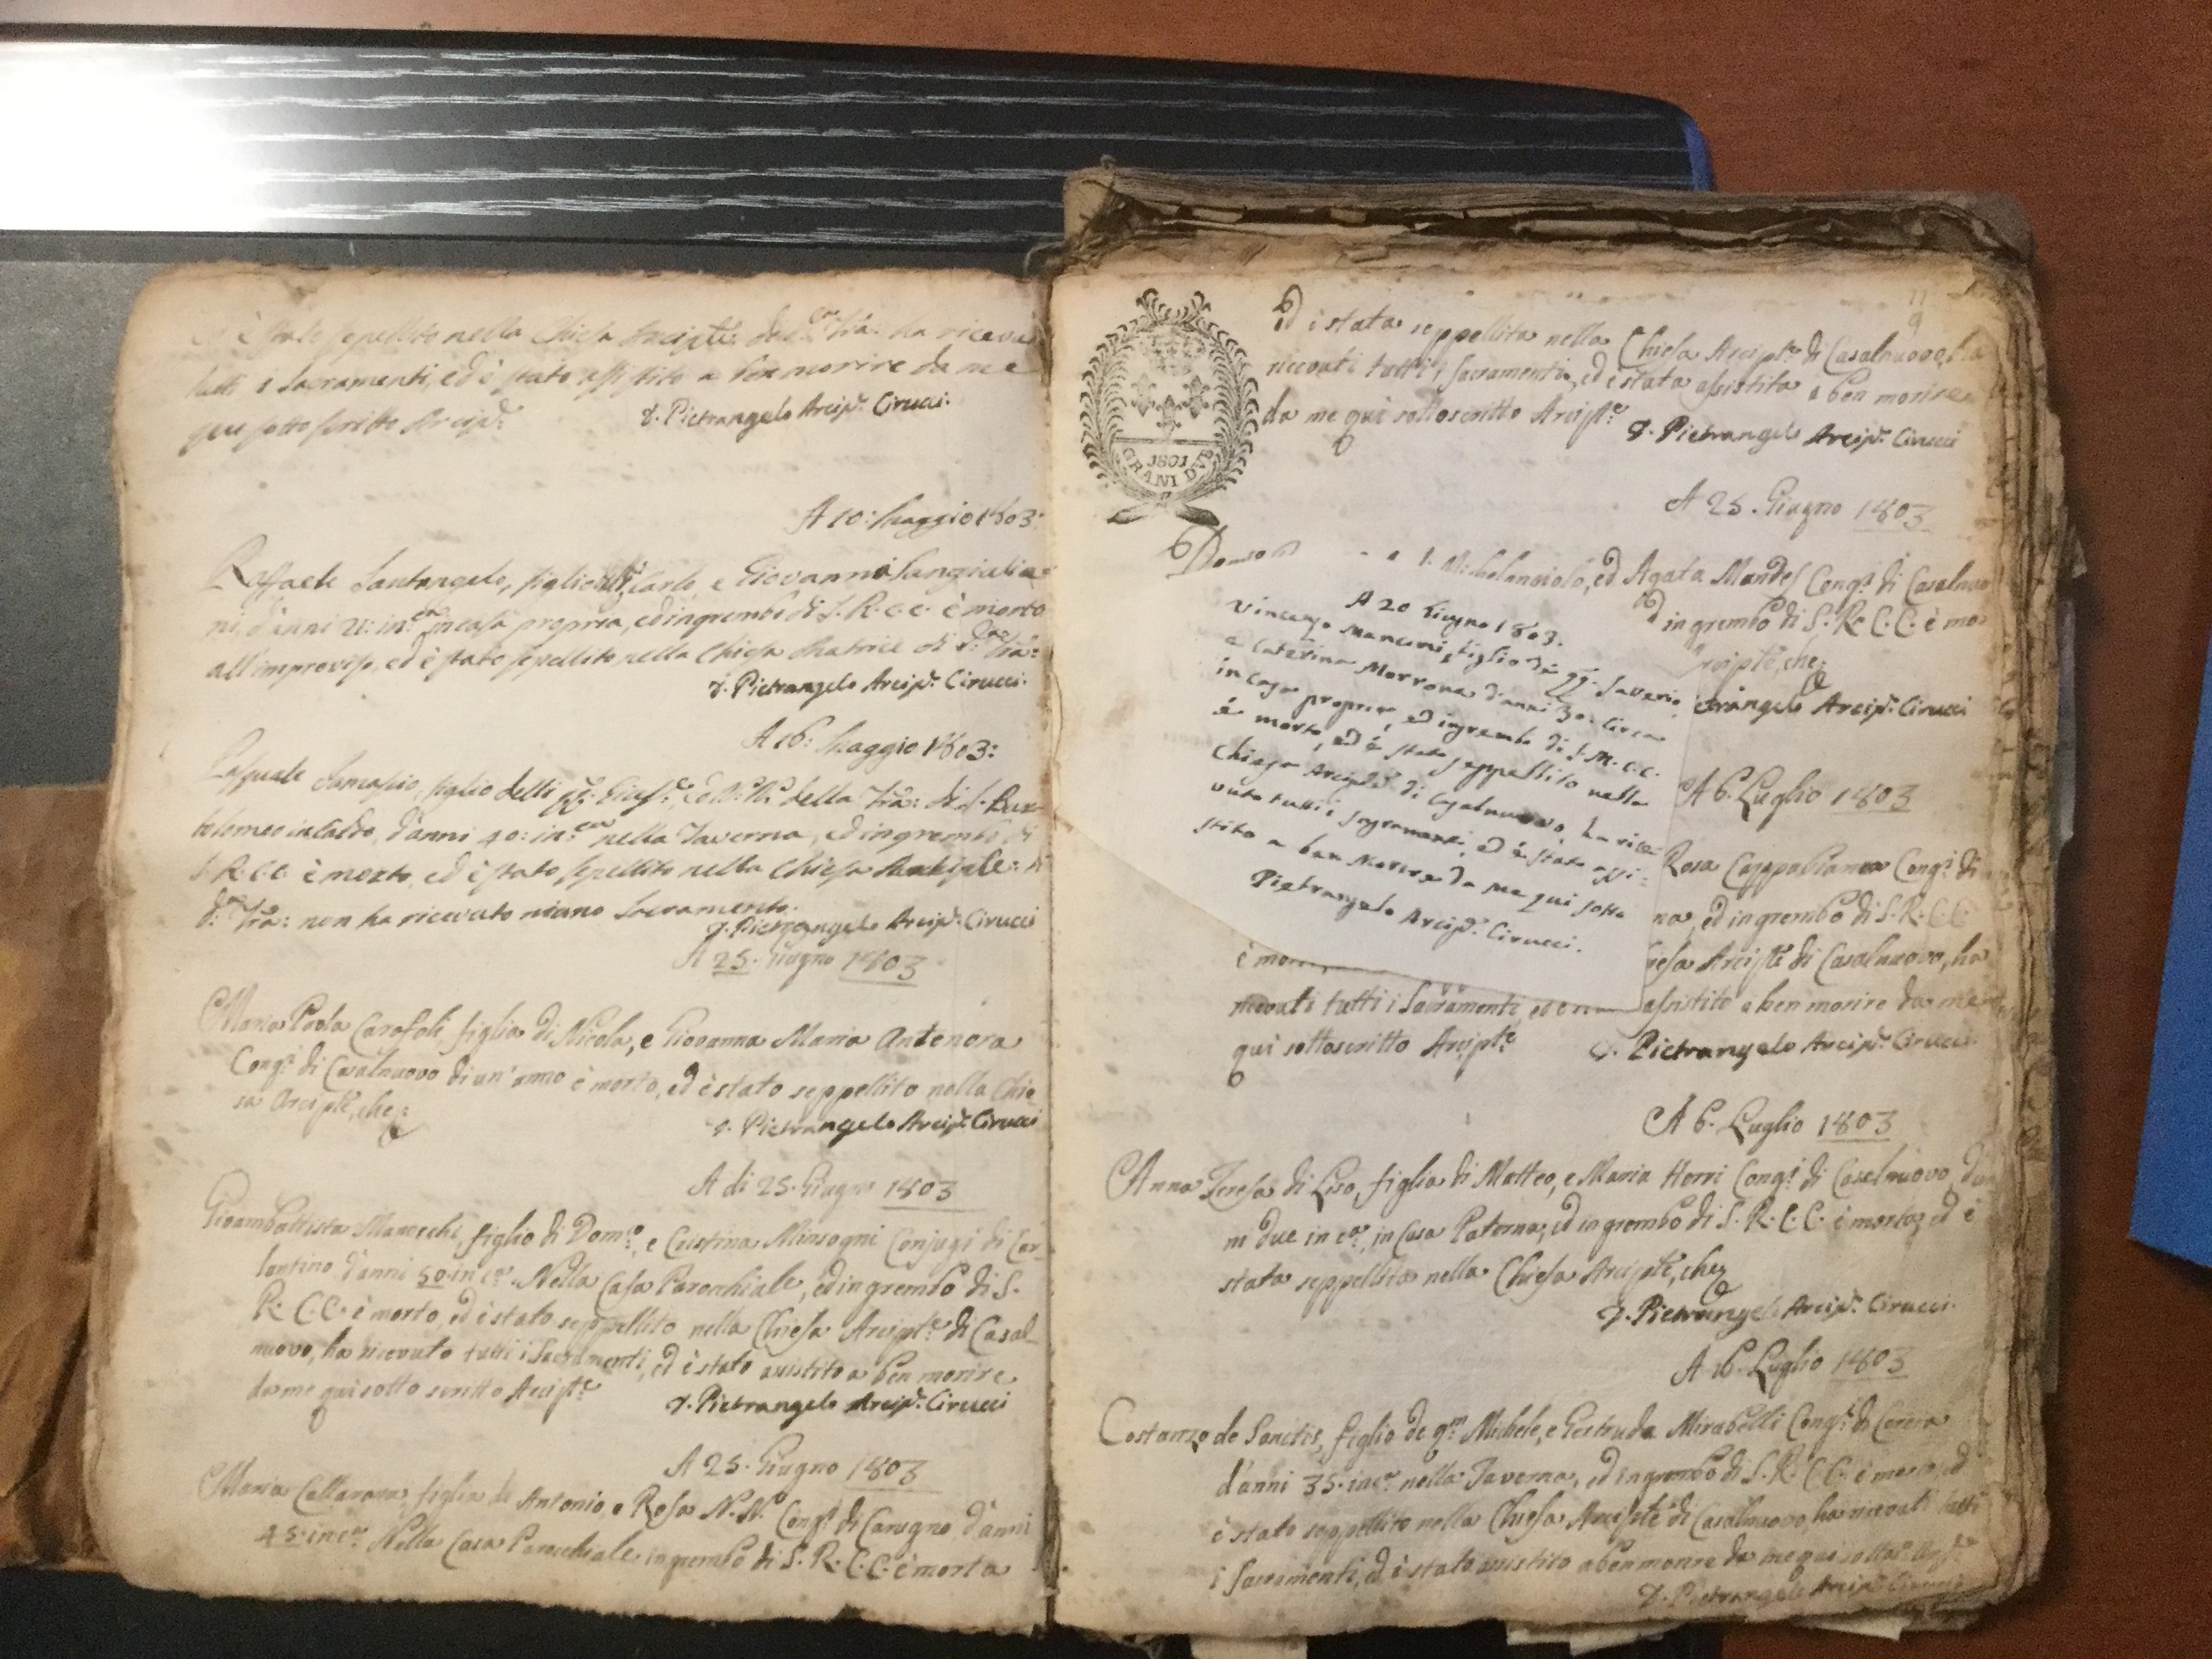 è stato sepellito nella Chiesa Arciple: di d.ta Trã: ha ricevu
tutti i Sacramenti, ed è stato assistito a ben morire da me
qui sotto scritto Arcip.te
D. Pietrangelo Arcip.te Cirucci.
A 10: Maggio 1803:
Raffaele Santangelo, figlio di Carlo, e Giovanna Sangiulia
ni, d'anni 21: in c.ca in casa propria, ed in grembo di S. R. C. C. è morto
all'improviso, ed è stato sepellito nella Chiesa Matrice di d.ta Trã:
D. Pietrangelo Arcip.te Cirucci.
A 16: Maggio 1803:
Pasquale Tomasso, figlio delli qq. Gius.e, e N: N: della Trã: di S. Bar
tolomeo in Galdo, d'anni 40: in c.ca nella Taverna, ed in grembo di
S. R. C. C. è morto, ed è stato sepellito nella Chiesa Arciple: di
d.ta Trã: non ha ricevuto niuno Sacramento.
D. Pietrangelo Arcip.te Cirucci
A 25. Giugno 1803
Maria Paola Carosoli, figlia di Nicola, e Giovanna Maria Antenora
Cong.i di Casalnuovo di un'anno è morto, ed è stato seppellito nella Chie
sa Arciplẽ, che
D. Pietrangelo Arcip.te Cirucci
A di 25. Giugno 1803
Giambattista figlio di Dom.co, e Cristina Minsogni Conjugi di Car
lantino d'anni 50. in c.a Nella Casa Parochiale, ed in grembo di S.
R. C. C. è morto, ed è stato seppellito nella Chiesa Arcipl.e di Casal
nuovo, ha ricevuto tutti i Sacramenti, ed è stato assistito a ben morire
da me qui sotto scritto Arcip.te
D. Pietrangelo Arcip.te Cirucci
A 25. Giugno 1803
Maria Cellarara, figlia di Antonio, e Rosa N. N. Cong.i di Carugno d'anni
45. in c.a Nella Casa Parochiale in grembo di S. R. C. C. è morta
Ed è stata seppellita nella Chiesa Arcipl.e di Casalnuovo, ha
ricevuti tutti i Sacramenti, ed è stata assistita a ben morire
da me qui sottoscritto Arcip.te
D. Pietrangelo Arcip.te Cirucci
1801
GRANI DVE
A 25. Giugno 1803
ed Agata Mandes Cong.i di Casalnuo
ed in grembo di S. R. C. C. è mor
Arciplẽ, che
trangelo Arcip.te Cirucci
A 20 Giugno 1803.
Vincenzo Mancini, figlio dè qq. Saverio,
e Caterina Morrone d'anni 30. circa
in casa propria, ed ingrembo di S. M. C. C.
è morto, ed è stato seppellito nella
Chiesa Arciple di Casalnuovo, ha rice
vuto tutti i sagramenti, ed è stato assi:
stito a ben Morire da me qui sotto
Pietrangelo Arcip.te Cirucci.
A 6. Luglio 1803
Rosa Casapabianca Cong.i di
na, ed in grembo di S. R. C. C.
è mor
hiesa Arciplẽ di Casalnuovo, ha
ricevuti tutti i Sacramenti, ed è assistito a ben morire da me
qui sottoscritto Arcip.te
D. Pietrangelo Arcip.te Cirucci
A 6. Luglio 1803
Anna Teresa di Liso, figlia di Matteo, e Maria Horri Cong.i di Casalnuovo, d'an
ni due in c.a, in Casa Paterna, ed in grembo di S. R. C. C. è morta, ed è
stata seppellita nella Chiesa Arciplẽ, che
D. Pietrangelo Arcip.te Cirucci.
A 16. Luglio 1803
Costanzo de Sanctis, figlio de q.m Michele, e Gertruda Mirabelli Cong.i di Cercia
d'anni 35. in c.a nella Taverna, ed in grembo di S. R. C. C. è morto, ed
è stato seppellito nella Chiesa Arciplẽ di Casalnuovo, ha ricevuti tutti
i Sacramenti, ed è stato assistito a ben morire da me qui sottos.o Arcip.te
D. Pietrangelo Arcip.te Cirucci